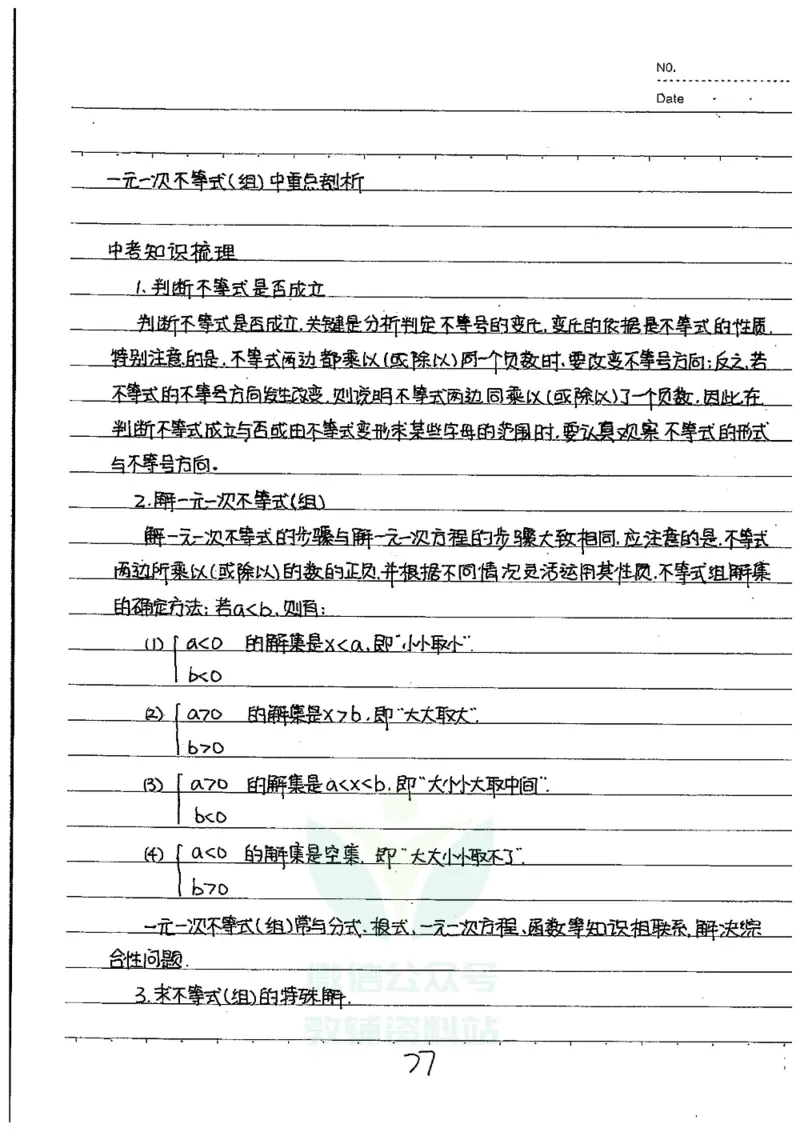 NO.
Date
一元一次不等式(组)中重点剖析
中考知识梳理
1.判断不等式是否成立
判断不等式是否成立,关键是分析判定不等号的变化,变化的依据是不等式的性质.
特别注意的是,不等式两边都乘以(或除以)同一个负数时,要改变不等号方向;反之,若
不等式的不等号方向发生改变,则说明不等式两边同乘以(或除以)了一个负数.因此在
判断不等式成立与否或由不等式变形求某些字母的范围时,要认真观察不等式的形式
与不等号方向。
2.解一元一次不等式(组)
解一元一次不等式的步骤与解一元一次方程的步骤大致相同,应注意的是,不等式
两边所乘以(或除以)的数的正负,并根据不同情况灵活运用其性质,不等式组解集
的确定方法:若a<b,则有:
(1) { a<0 的解集是x<a,即"小小取小".
b<0
(2) { a>0 的解集是x>b,即"大大取大".
b>0
(3) { a>0 的解集是a<x<b,即"大小小大取中间".
b<0
(4) { a<0 的解集是空集,即"大大小小取不了".
b>0
一元一次不等式(组)常与分式、根式、一元一次方程、函数等知识相联系,解决综
合性问题.
3.求不等式(组)的特殊解.
微信公众号
教辅资料站
77